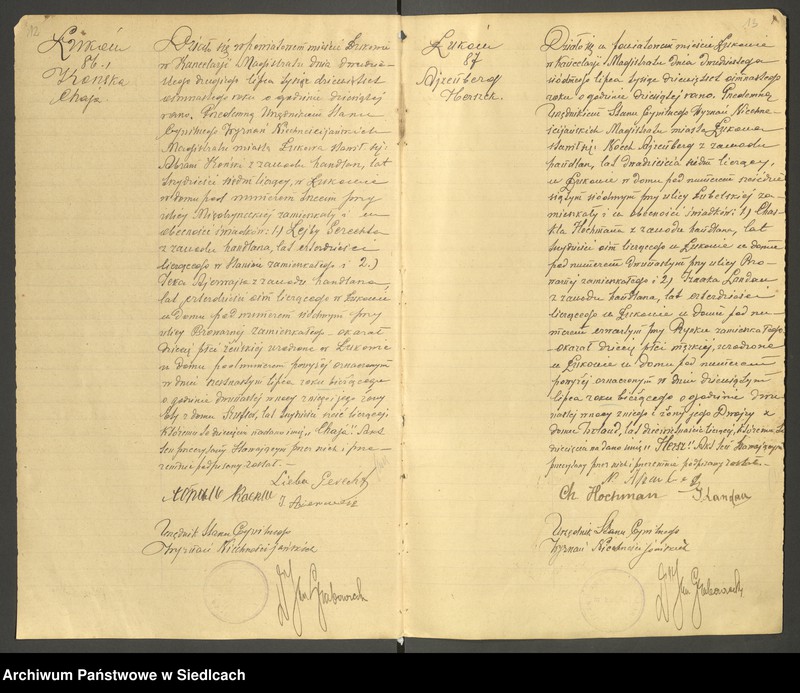 12
Łuków
86.
Końska
Chaja.
Działo się w powiatowem mieście Łukowie
w Kancelarji Magistratu dnia dwudzie-
stego drugiego lipca tysiąc dziewięćset
ośmnastego roku o godzinie dziesiątej
rano. Przedemną Urzędnikiem Stanu
Cywilnego Wyznań Niechrześcijańskich
Magistratu miasta Łukowa stawił się
Abram z zawodu handlarz, lat
trzydzieści siedm liczący, w Łukowie
w domu pod numerem przy
ulicy Międzyrzeckiej zamieszkały i w
obecności świadków: 1.) Lejby Gerechta
z zawodu handlarza, lat czterdzieści
liczącego w zamieszkałego i 2.)
z zawodu handlarza,
lat czterdzieści ośm liczącego w Łukowie
w domu pod numerem siódmym przy
ulicy Browarnej zamieszkałego - okazał
dziecię płci żeńskiej urodzone w Łukowie
w domu pod numerem powyżej oznaczonym
w dniu szesnastym lipca roku bieżącego
o godzinie dwunastej w nocy z niego i jego żony
z domu lat trzydzieści sześć liczącej
któremu to dziecięciu nadano imię „Chaja". Akt
ten przeczytany stawającym przez nich i prze-
zemnie podpisany został. -
Urzędnik Stanu Cywilnego
Wyznań Niechrześcijańskich
13
Łuków
87
Ajzenberg
Herszek.
Działo się w powiatowem mieście Łukowie
w Kancelarji Magistratu dnia dwudziestego
siódmego lipca tysiąc dziewięćset ośmnastego
roku o godzinie dziesiątej rano. Przedemną
Urzędnikiem Stanu Cywilnego Wyznań Niechrze-
ścijańskich Magistratu miasta Łukowa
stawił się Ajzenberg z zawodu
handlarz, lat dwadzieścia siedm liczący,
w Łukowie w domu pod numerem sześćdzie-
siątym siódmym przy ulicy Lubelskiej za-
mieszkały i w obecności świadków: 1) Chas-
kla Hochmana z zawodu handlarza, lat
trzydzieści ośm liczącego w Łukowie w domu
pod numerem dwunastym przy ulicy Bro-
warnej zamieszkałego i 2) Icaka Landau
z zawodu handlarza, lat czterdzieści
liczącego w Łukowie w domu pod nu-
merem czwartym przy Rynku zamieszkałego
- okazał dziecię płci męzkiej, urodzone
w Łukowie w domu pod numerem
powyżej oznaczonym w dniu dziesiątym
lipca roku bieżącego o godzinie dwu-
nastej w nocy z niego i żony jego Dwojry z
domu lat dziewiętnaście liczącej, któremu to
dziecięciu nadano imię „Hersz". Akt ten stawającym
przeczytany przez nich i przezemnie podpisany został. -
Ch Hochman I Landau
Urzędnik Stanu Cywilnego
Wyznań Niechrześcijańskich
Archiwum Państwowe w Siedlcach